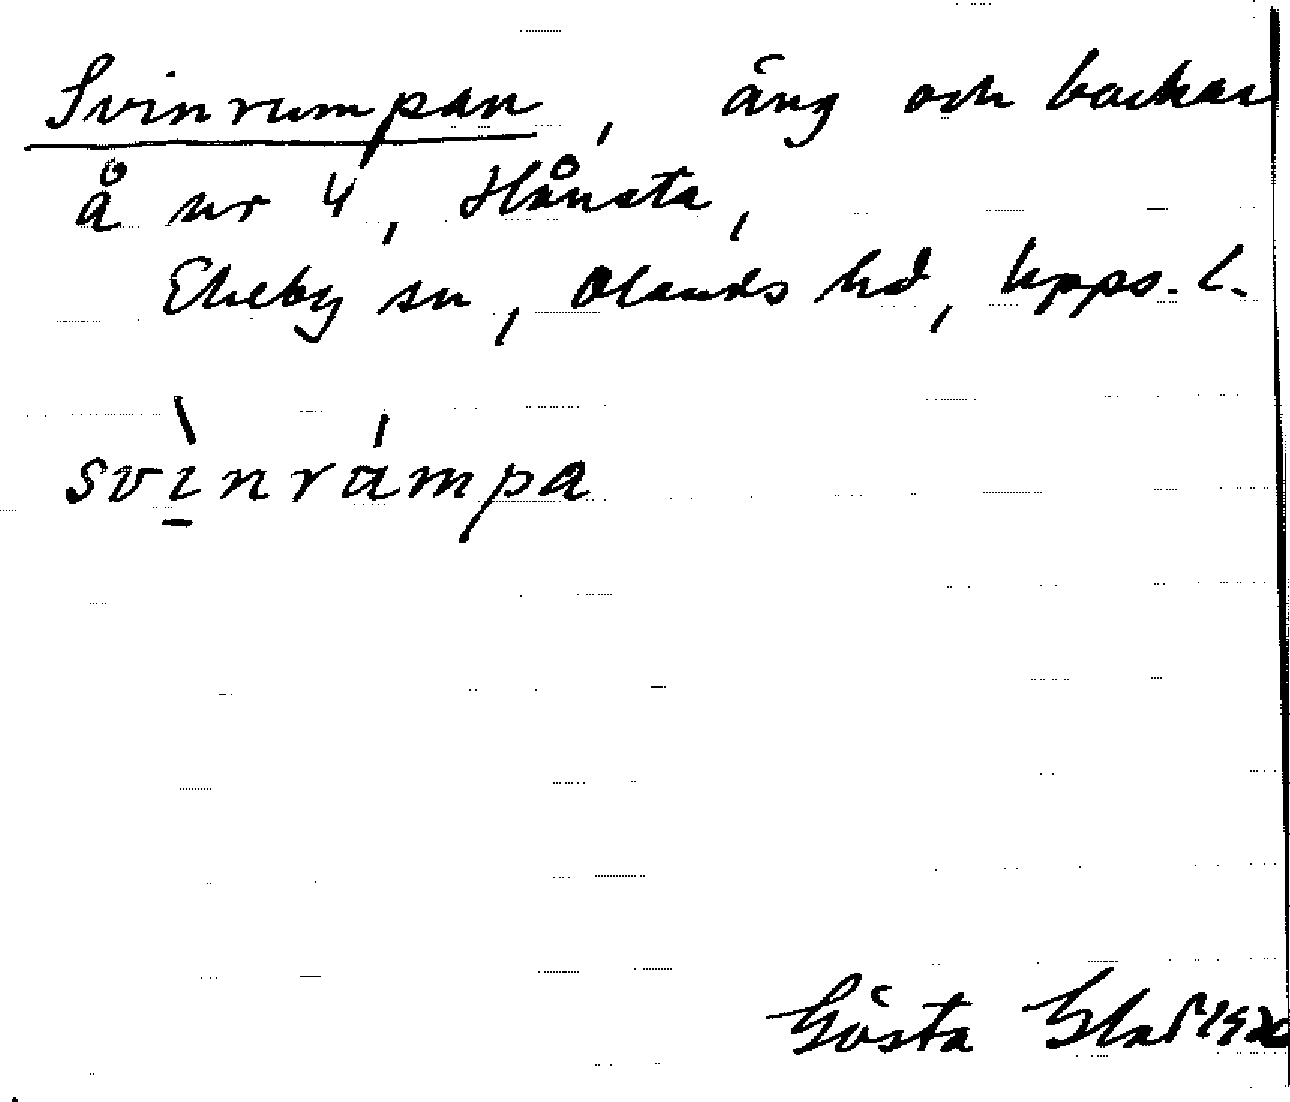 Svinrumpan, äng och backar
å nr 4, Hånsta,
Ekeby sn, Olands hd, Upps. l.
svinrampa
Gösta 1920